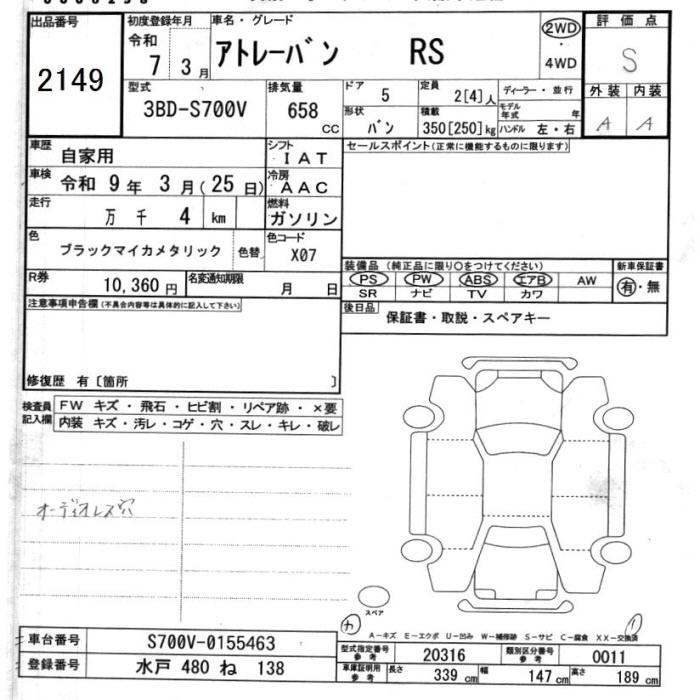 出品番号 初度登録年月 車名・グレード 2WD 評価点
2149 令和 アトレーバン RS ・ S
7年 3月 4WD
型式 排気量 ドア 5 定員 2[4]人 ディーラー・並行 外装 内装
3BD-S700V 658 cc 形状 バン 積載 350[250]kg モデル年式 年 A A
ハンドル 左・右
車歴 自家用 シフト IAT セールスポイント(正常に機能するものに限ります)
車検 令和 9年 3月(25日) 冷房 AAC
走行 万 千 4 km 燃料 ガソリン
色 ブラックマイカメタリック 色替 色コード X07
装備品 (純正品に限り○をつけてください) 新車保証書
R券 10,360円 名変通知期限 月 日 PS PW ABS エアB AW 有・無
SR ナビ TV カワ
注意事項申告欄(不具合内容等は具体的に記入して下さい) 後日品 保証書・取説・スペアキー
修復歴 有〔箇所 〕
検査員記入欄 FW キズ・飛石・ヒビ割・リペア跡・×要
内装 キズ・汚レ・コゲ・穴・スレ・キレ・破レ
オーディオレス穴
スペア
カ イ
A−キズ E−エクボ U−凹み W−補修跡 S−サビ C−腐食 XX−交換済
車台番号 S700V-0155463 型式指定番号 参考 20316 類別区分番号 参考 0011
登録番号 水戸 480 ね 138 車庫証明用 参考 長さ 339 cm 幅 147 cm 高さ 189 cm